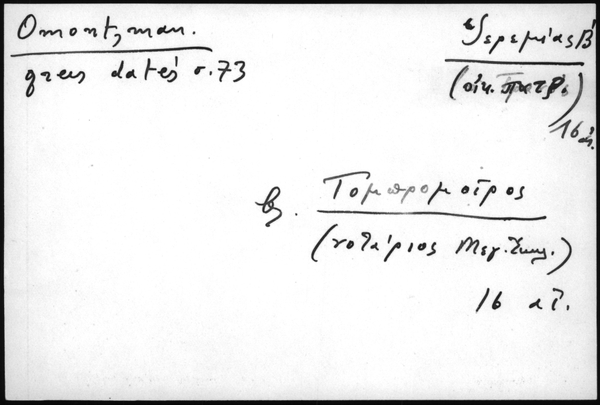 Omont, man.
grecs datés σ. 73
Ἱερεμίας Β΄
(οἰκ. πατρ.)
16 αἰ.
βλ. Τομπρομοῖρος
(νοτάριος Μεγ. Ἐκκλ.)
16 αἰ.